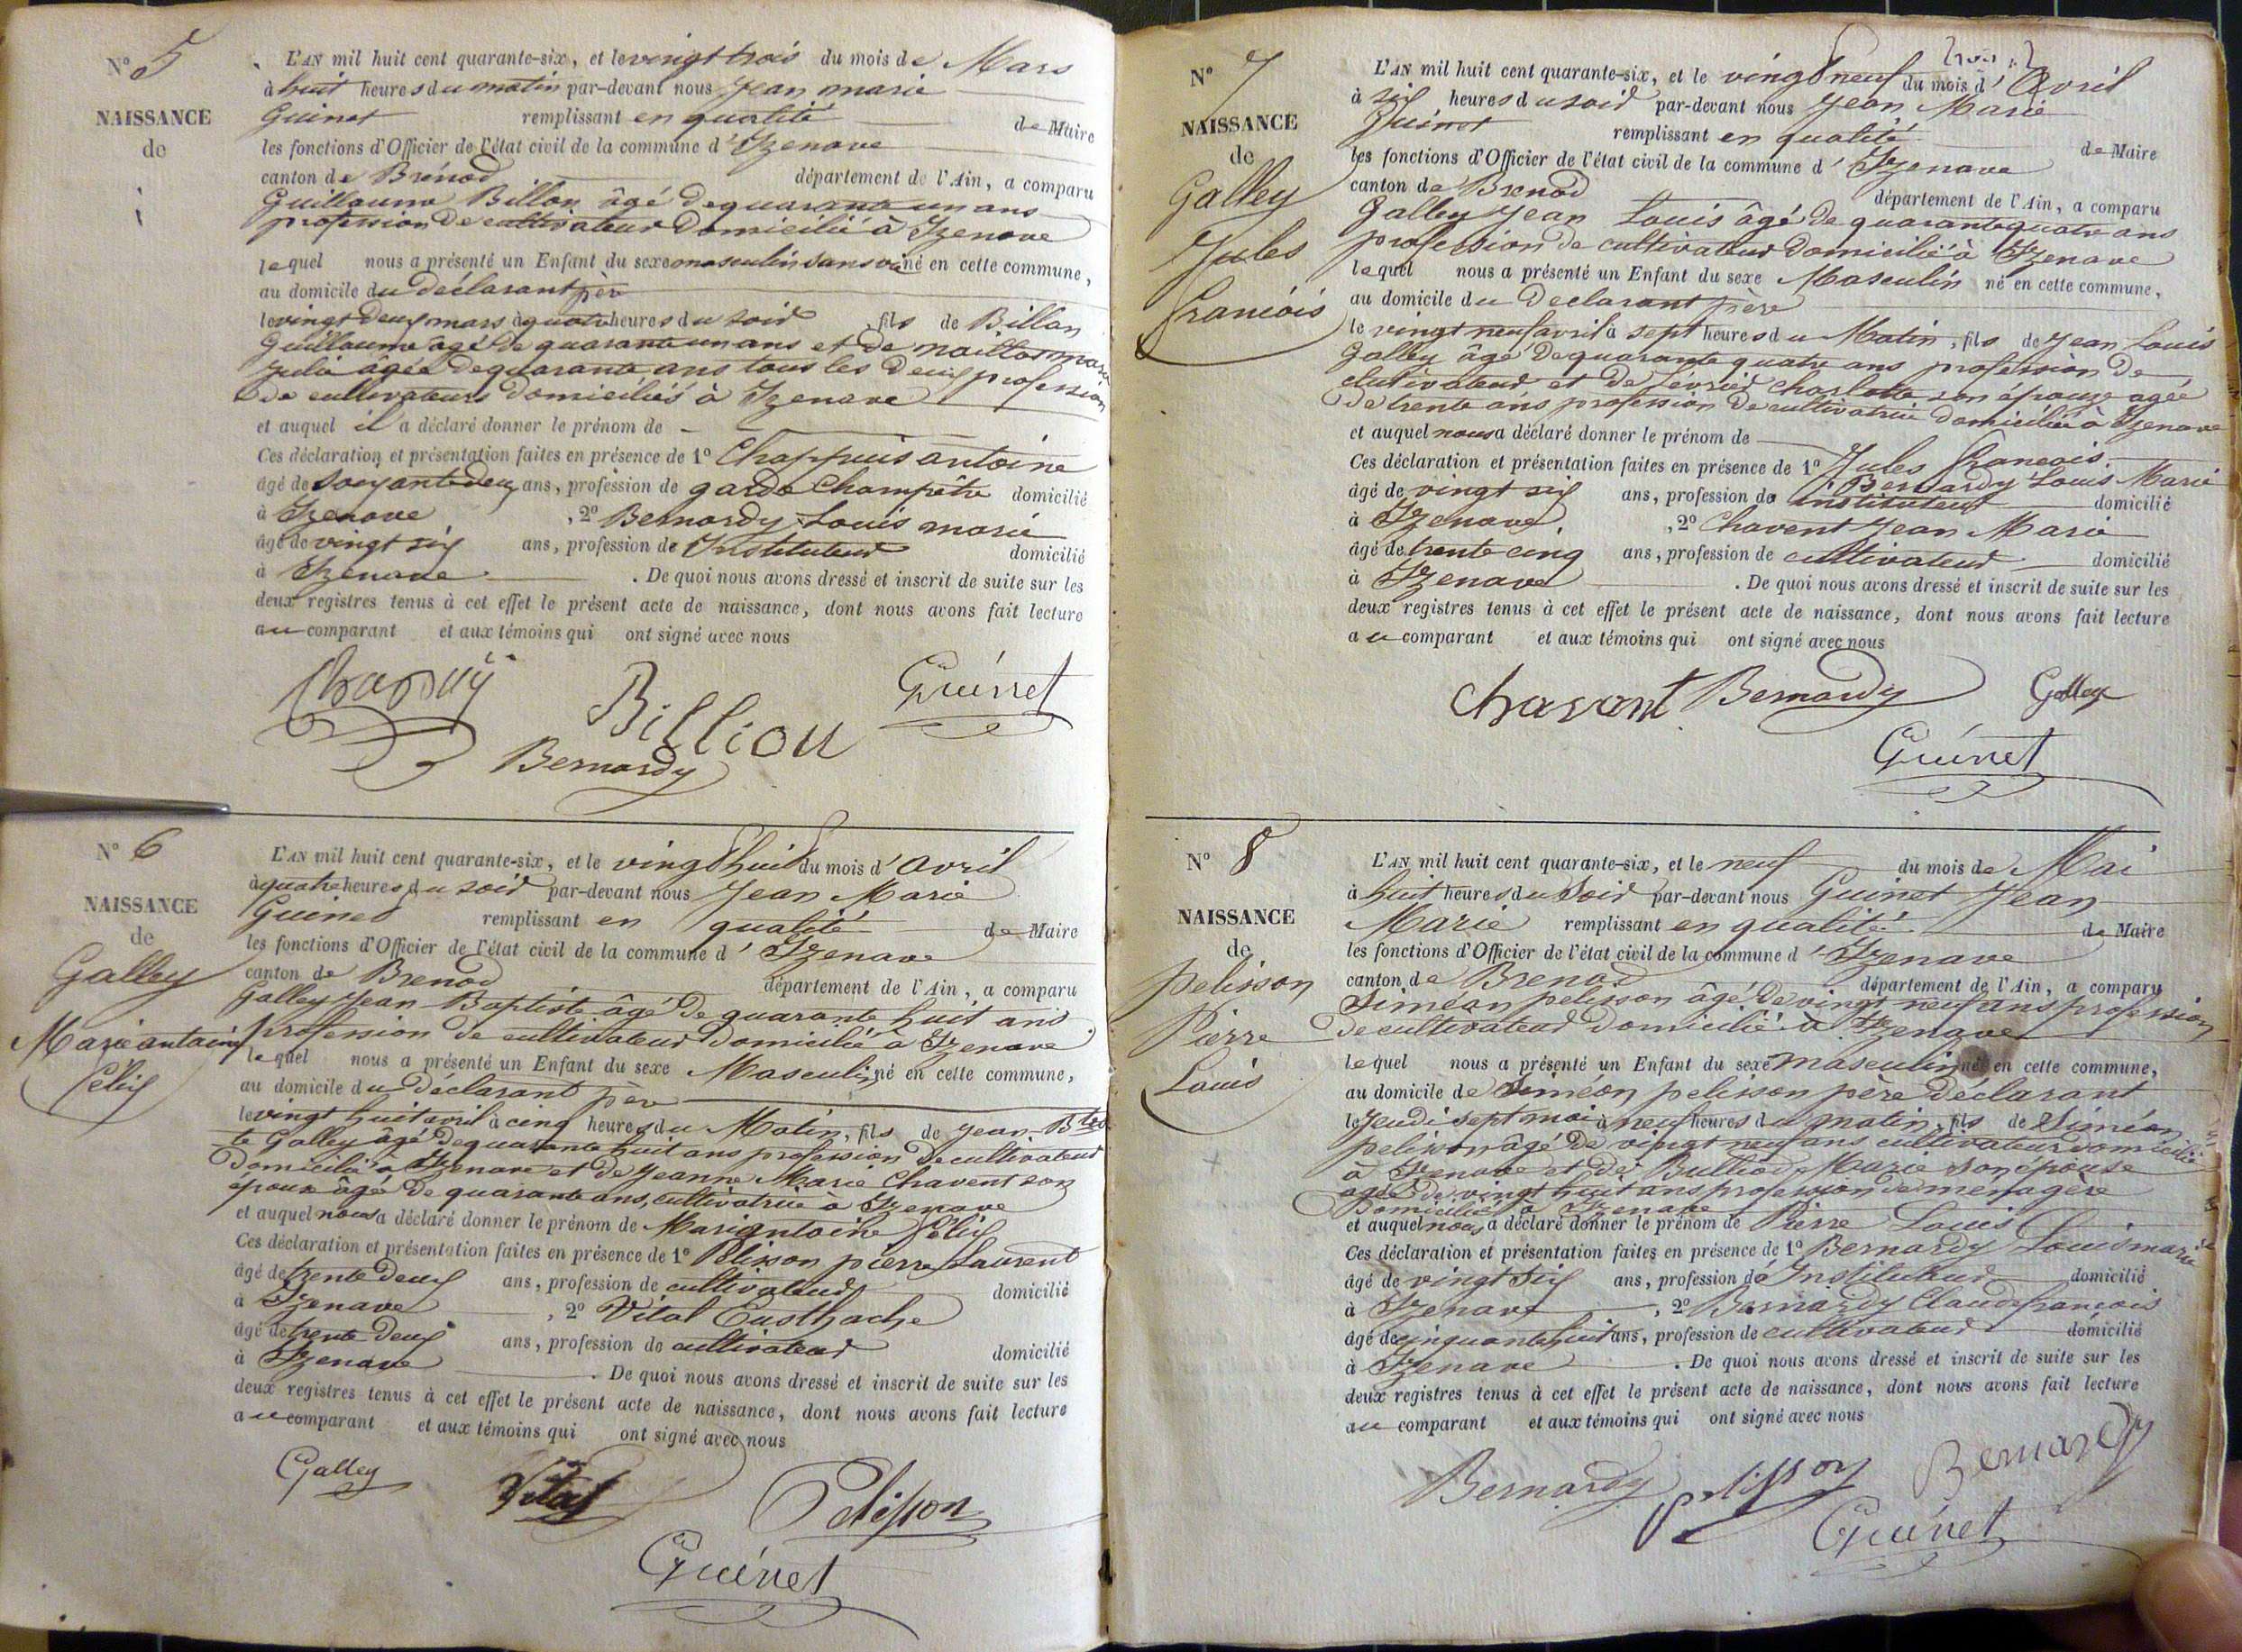 N° 5
NAISSANCE
de
L'AN mil huit cent quarante-six, et le vingt trois du mois de Mars
à huit heures du matin par-devant nous Jean marie
Guinet remplissant en qualité de Maire
les fonctions d'Officier de l'état civil de la commune d'Izenave
canton de Brénod département de l'Ain, a comparu
Guillaume Billon âgé de quarante un ans
profession de cultivateur Domicilié à Izenave
lequel nous a présenté un Enfant du sexe masculin sans vie né en cette commune,
au domicile du Déclarant père
le vingt deux mars à quatre heures du soir fils de Billon
Guillaume agé de quarante un ans et de
Julie âgée de quarante ans tous les deux profession
de cultivateurs domiciliés à Izenave
et auquel il a déclaré donner le prénom de
Ces déclaration et présentation faites en présence de 1° Chappuis antoine
âgé de soixante deux ans, profession de garde Champêtre domicilié
à Izenave , 2° Bernardy Louis marie
âgé de vingt six ans, profession de Instituteur domicilié
à Izenave . De quoi nous avons dressé et inscrit de suite sur les
deux registres tenus à cet effet le présent acte de naissance, dont nous avons fait lecture
au comparant et aux témoins qui ont signé avec nous
Chapuy Billiou Guinet
Bernardy
N° 6
NAISSANCE
de
Galley
Marie antoine
Félix
L'AN mil huit cent quarante-six, et le vingt huit du mois d'Avril
à quatre heures du soir par-devant nous Jean Marie
Guinet remplissant en qualité de Maire
les fonctions d'Officier de l'état civil de la commune d'Izenave
canton de Brenod département de l'Ain, a comparu
Galley Jean Baptiste âgé de quarante huit ans
profession de cultivateur Domicilié à Izenave
lequel nous a présenté un Enfant du sexe Masculin né en cette commune,
au domicile du Déclarant père
le vingt huit avril à cinq heures du Matin, fils de Jean Btis
te Galley âgé de quarante huit ans profession de cultivateur
Domicilié à Izenave et de Jeanne Marie Chavent son
épouse âgé de quarante ans, cultivatrice à Izenave
et auquel nous a déclaré donner le prénom de Mariantoine Félix
Ces déclaration et présentation faites en présence de 1° Pélisson pierre Laurent
âgé de trente deux ans, profession de cultivateur domicilié
à Izenave , 2° Vital Eusthache
âgé de trente deux ans, profession de cultivateur domicilié
à Izenave . De quoi nous avons dressé et inscrit de suite sur les
deux registres tenus à cet effet le présent acte de naissance, dont nous avons fait lecture
au comparant et aux témoins qui ont signé avec nous
Galley Vital Pelisson
Guinet
N° 7
NAISSANCE
de
Galley
Jules
francois
L'AN mil huit cent quarante-six, et le vingt neuf du mois d'Avril
à six heures du soir par-devant nous Jean Marie
Guinet remplissant en qualité de Maire
les fonctions d'Officier de l'état civil de la commune d'Izenave
canton de Brenod département de l'Ain, a comparu
Galley Jean Louis âgé de quarante quatre ans
profession de cultivateur Domicilié à Izenave
lequel nous a présenté un Enfant du sexe Masculin né en cette commune,
au domicile du Declarant père
le vingt neuf avril à sept heures du Matin, fils de Jean Louis
Galley âgé de quarante quatre ans profession de
clutivateur et de Février Charlotte son épouze agée
de trente ans profession de cultivatrice domiciliée à Izenave
et auquel nous a déclaré donner le prénom de
Ces déclaration et présentation faites en présence de 1° Jules francois
Bernardy Louis Marie
âgé de vingt six ans, profession de instituteur domicilié
à Izenave , 2° Chavent Jean Marie
âgé de trente cinq ans, profession de cultivateur domicilié
à Izenave . De quoi nous avons dressé et inscrit de suite sur les
deux registres tenus à cet effet le présent acte de naissance, dont nous avons fait lecture
au comparant et aux témoins qui ont signé avec nous
Chavant Bernardy Galley
Guinet
N° 8
NAISSANCE
de
pelisson
Pierre
Louis
L'AN mil huit cent quarante-six, et le neuf du mois de Mai
à huit heures du Soir par-devant nous Guinet Jean
Marie remplissant en qualité de Maire
les fonctions d'Officier de l'état civil de la commune d'Izenave
canton de Brenod département de l'Ain, a comparu
Siméon pelisson âgé de vingt neuf ans profession
de cultivateur Domicilié à Izenave
lequel nous a présenté un Enfant du sexe masculin né en cette commune,
au domicile de Siméon pelisson père déclarant
le Jeudi sept mai à neuf heures du matin, fils de Siméon
pelisson âgé de vingt neuf ans cultivateur domicilié
à Izenave et de Bulliod Marie son épouse
agée de vingt huit ans profession de ménagère
Domiciliée à Izenave
et auquel nous a déclaré donner le prénom de Pierre Louis
Ces déclaration et présentation faites en présence de 1° Bernardy Louis marie
âgé de vingt six ans, profession de Instituteur domicilié
à Izenave , 2° Bernardy Claude francois
âgé de cinquante huit ans, profession de cultivateur domicilié
à Izenave . De quoi nous avons dressé et inscrit de suite sur les
deux registres tenus à cet effet le présent acte de naissance, dont nous avons fait lecture
au comparant et aux témoins qui ont signé avec nous
Bernardy pelisson Bernardy
Guinet